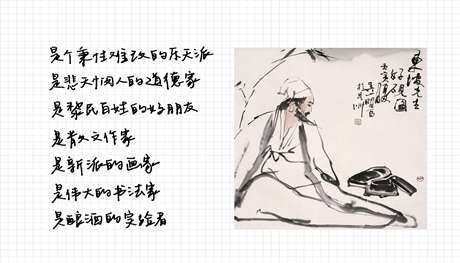 是个秉性难改的乐天派
是悲天悯人的道德家
是黎民百姓的好朋友
是散文作家
是新派的画家
是伟大的书法家
是酿酒的实验者
东坡先生
好砚图